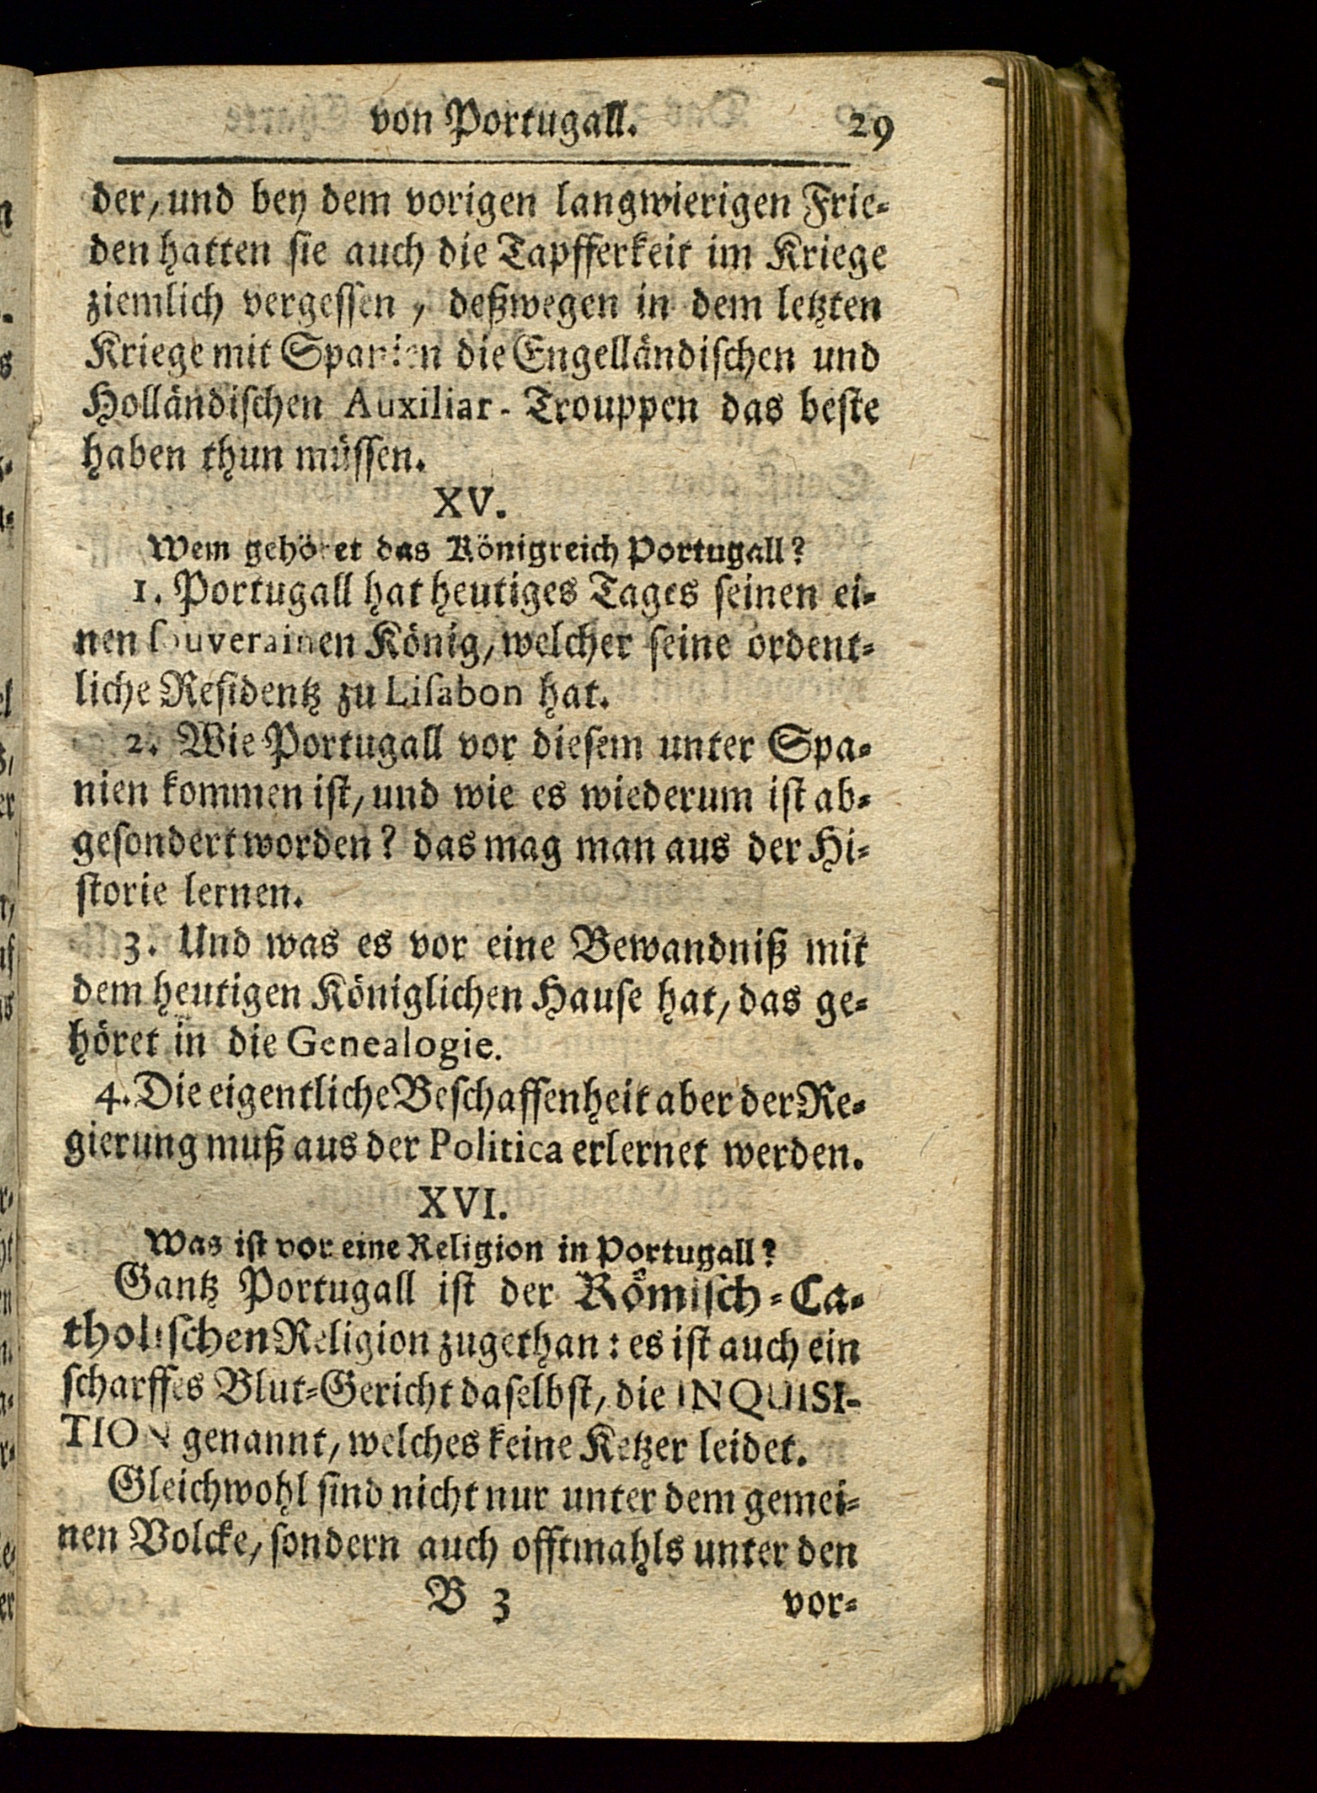 von Portugall. 29
der, und bey dem vorigen langwierigen Frie-
den hatten sie auch die Tapfferkeit im Kriege
ziemlich vergessen, deßwegen in dem letzten
Kriege mit Spanien die Engelländischen und
Holländischen Auxiliar-Trouppen das beste
haben thun müssen.
XV.
Wem gehöret das Königreich Portugall?
1. Portugall hat heutiges Tages seinen ei-
nen souverainen König, welcher seine ordent-
liche Residentz zu Lisabon hat.
2. Wie Portugall vor diesem unter Spa-
nien kommen ist, und wie es wiederum ist ab-
gesondert worden? das mag man aus der Hi-
storie lernen.
3. Und was es vor eine Bewandniß mit
dem heutigen Königlichen Hause hat, das ge-
höret in die Genealogie.
4. Die eigentliche Beschaffenheit aber der Re-
gierung muß aus der Politica erlernet werden.
XVI.
Was ist vor eine Religion in Portugall?
Gantz Portugall ist der Römisch-Ca-
tholischen Religion zugethan: es ist auch ein
scharffes Blut-Gericht daselbst, die INQUISI-
TION genannt, welches keine Ketzer leidet.
Gleichwohl sind nicht nur unter dem gemei-
nen Volcke, sondern auch offtmahls unter den
B 3 vor-